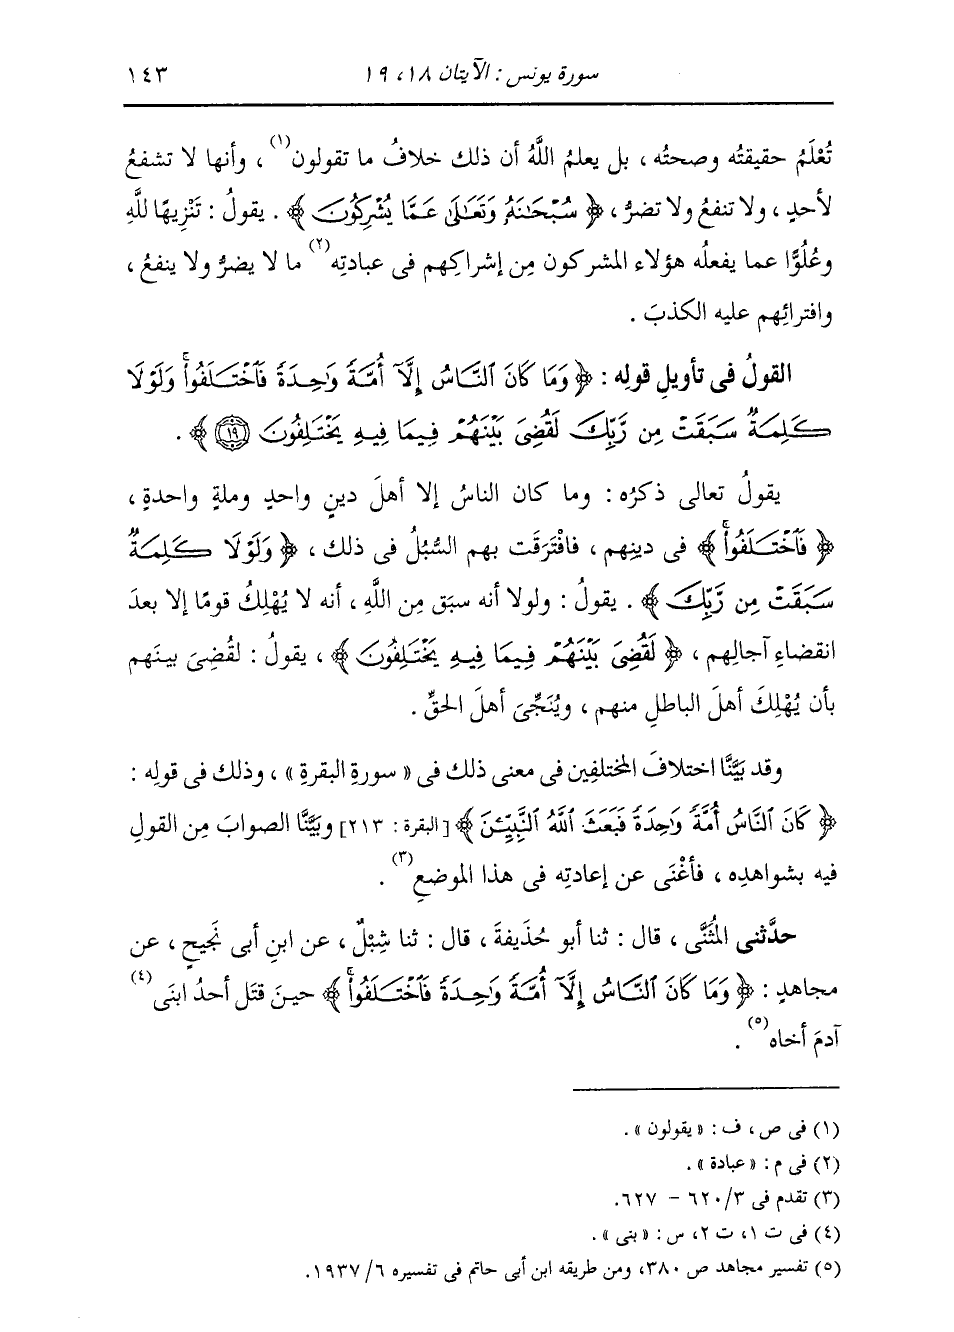 سورة يونس : الآيتان ١٨، ١٩
١٤٣
تُعْلَمُ حقيقتُه وصحتُه ، بل يعلمُ اللَّهُ أن ذلك خلافُ ما تقولون(١) ، وأنها لا تشفعُ
لأحدٍ ، ولا تنفعُ ولا تضرُّ ، ﴿ سُبْحَٰنَهُۥ وَتَعَٰلَىٰ عَمَّا يُشْرِكُونَ ﴾ . يقولُ : تَنْزِيهًا للَّهِ
وعُلُوًّا عما يفعلُه هؤلاء المشركون مِن إشراكِهم فى عبادتِه(٢) ما لا يضرُّ ولا ينفعُ ،
وافترائِهم عليه الكذبَ .
القولُ فى تأويلِ قولِه : ﴿ وَمَا كَانَ ٱلنَّاسُ إِلَّآ أُمَّةً وَٰحِدَةً فَٱخْتَلَفُوا۟ۚ وَلَوْلَا
كَلِمَةٌ سَبَقَتْ مِن رَّبِّكَ لَقُضِىَ بَيْنَهُمْ فِيمَا فِيهِ يَخْتَلِفُونَ ١٩ ﴾ .
يقولُ تعالى ذكرُه : وما كان الناسُ إلا أهلَ دينٍ واحدٍ وملةٍ واحدةٍ ،
﴿ فَٱخْتَلَفُوا۟ۚ ﴾ فى دينِهم ، فافْتَرَقَت بهم السُّبُلُ فى ذلك ، ﴿ وَلَوْلَا كَلِمَةٌ
سَبَقَتْ مِن رَّبِّكَ ﴾ . يقولُ : ولولا أنه سبَق مِن اللَّهِ ، أنه لا يُهْلِكُ قومًا إلا بعدَ
انقضاءِ آجالِهم ، ﴿ لَقُضِىَ بَيْنَهُمْ فِيمَا فِيهِ يَخْتَلِفُونَ ﴾ ، يقولُ : لقُضِىَ بينَهم
بأن يُهْلِكَ أهلَ الباطلِ منهم ، ويُنَجِّىَ أهلَ الحقِّ .
وقد بَيَّنَّا اختلافَ المختلفِين فى معنى ذلك فى « سورةِ البقرةِ » ، وذلك فى قولِه :
﴿ كَانَ ٱلنَّاسُ أُمَّةً وَٰحِدَةً فَبَعَثَ ٱللَّهُ ٱلنَّبِيِّـۧنَ ﴾ [البقرة : ٢١٣] وبَيَّنَّا الصوابَ مِن القولِ
فيه بشواهدِه ، فأغْنَى عن إعادتِه فى هذا الموضعِ(٣) .
حدَّثنى المُثَنَّى ، قال : ثنا أبو حُذَيفةَ ، قال : ثنا شِبْلٌ ، عن ابنِ أبى نَجِيحٍ ، عن
مجاهدٍ : ﴿ وَمَا كَانَ ٱلنَّاسُ إِلَّآ أُمَّةً وَٰحِدَةً فَٱخْتَلَفُوا۟ۚ ﴾ حينَ قتَل أحدُ ابنَى(٤)
آدمَ أخاه(٥) .
(١) فى ص ، ف : « يقولون » .
(٢) فى م : « عبادة » .
(٣) تقدم فى ٣/ ٦٢٠ – ٦٢٧.
(٤) فى ت ١، ت ٢، س : « بنى » .
(٥) تفسير مجاهد ص ٣٨٠، ومن طريقه ابن أبى حاتم فى تفسيره ٦/ ١٩٣٧.